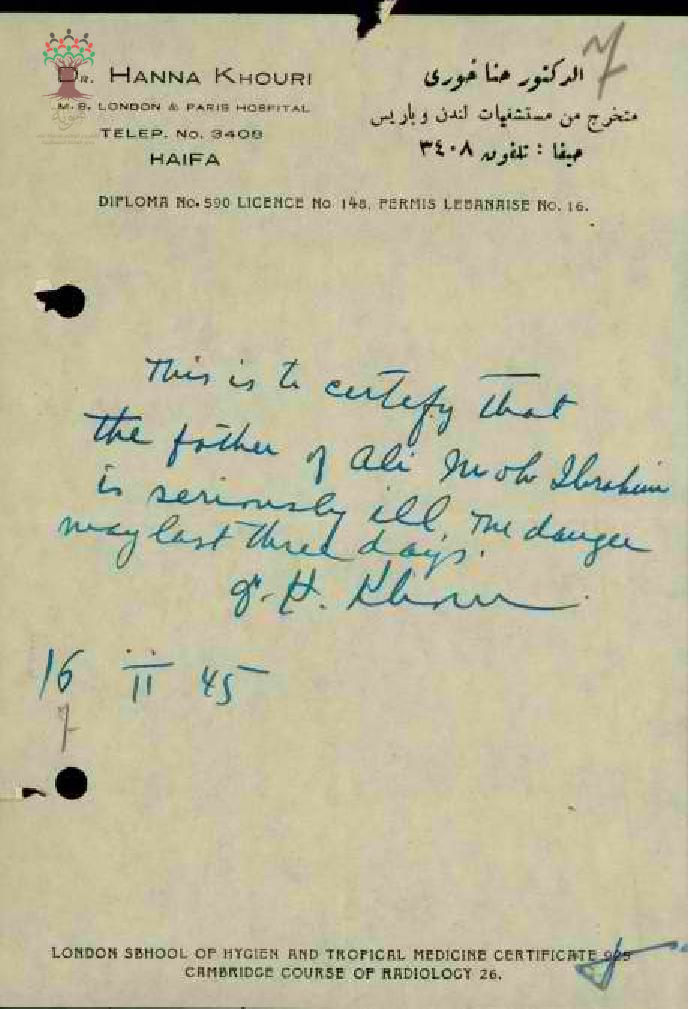 7
DR. HANNA KHOURI
M.B. LONDON & PARIS HOSPITAL
TELEP. No. 3408
HAIFA
الدكتور حنا خوري
متخرج من مستشفيات لندن وباريس
حيفا : تلفون ٣٤٠٨
DIPLOMA No. 590 LICENCE No 148. PERMIS LEBANAISE No. 16.
This is to certify that
the father of Ali Moh Ibrahim
is seriously ill. The danger
may last three days.
Dr. H. Khouri
16 II 45
7
LONDON SBHOOL OF HYGIEN AND TROPICAL MEDICINE CERTIFICATE 925
CAMBRIDGE COURSE OF RADIOLOGY 26.